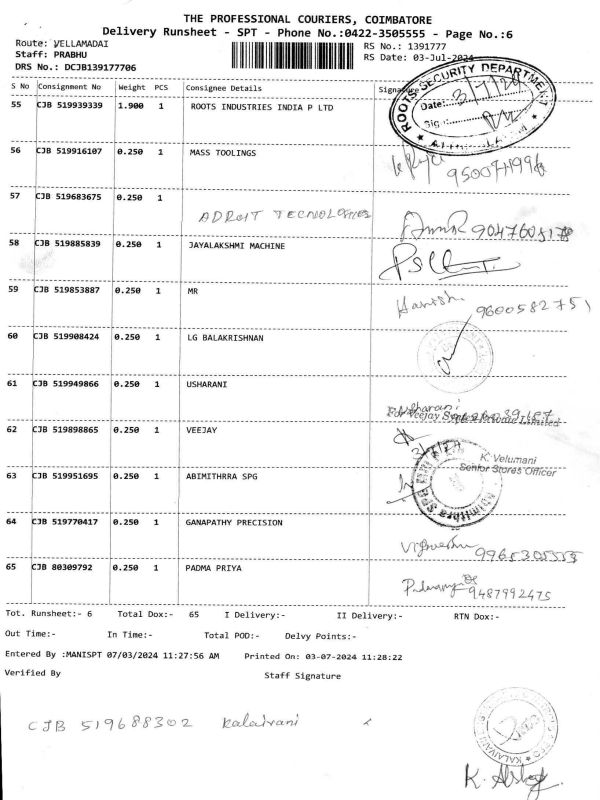 THE PROFESSIONAL COURIERS, COIMBATORE
Delivery Runsheet - SPT - Phone No.:0422-3505555 - Page No.:6
Route: VELLAMADAI
RS No.: 1391777
Staff: PRABHU
RS Date: 03-Jul-2024
DRS No.: DCJB139177706
S No Consignment No Weight PCS Consignee Details Signature
55 CJB 519939339 1.900 1 ROOTS INDUSTRIES INDIA P LTD
ROOTS SECURITY DEPARTMENT
Date: 3/7/24
Sig:
56 CJB 519916107 0.250 1 MASS TOOLINGS
57 CJB 519683675 0.250 1
ADROIT TECNOLOGIES
58 CJB 519885839 0.250 1 JAYALAKSHMI MACHINE
59 CJB 519853887 0.250 1 MR
Harish 9600582751
60 CJB 519908424 0.250 1 LG BALAKRISHNAN
61 CJB 519949866 0.250 1 USHARANI
Usharani
For Veejay Private Limited
62 CJB 519898865 0.250 1 VEEJAY
K. Velumani
Senior Stores Officer
63 CJB 519951695 0.250 1 ABIMITHRRA SPG
64 CJB 519770417 0.250 1 GANAPATHY PRECISION
65 CJB 80309792 0.250 1 PADMA PRIYA
9487992475
Tot. Runsheet:- 6 Total Dox:- 65 I Delivery:- II Delivery:- RTN Dox:-
Out Time:- In Time:- Total POD:- Delvy Points:-
Entered By :MANISPT 07/03/2024 11:27:56 AM Printed On: 03-07-2024 11:28:22
Verified By Staff Signature
CJB 519688302 Kalaivani